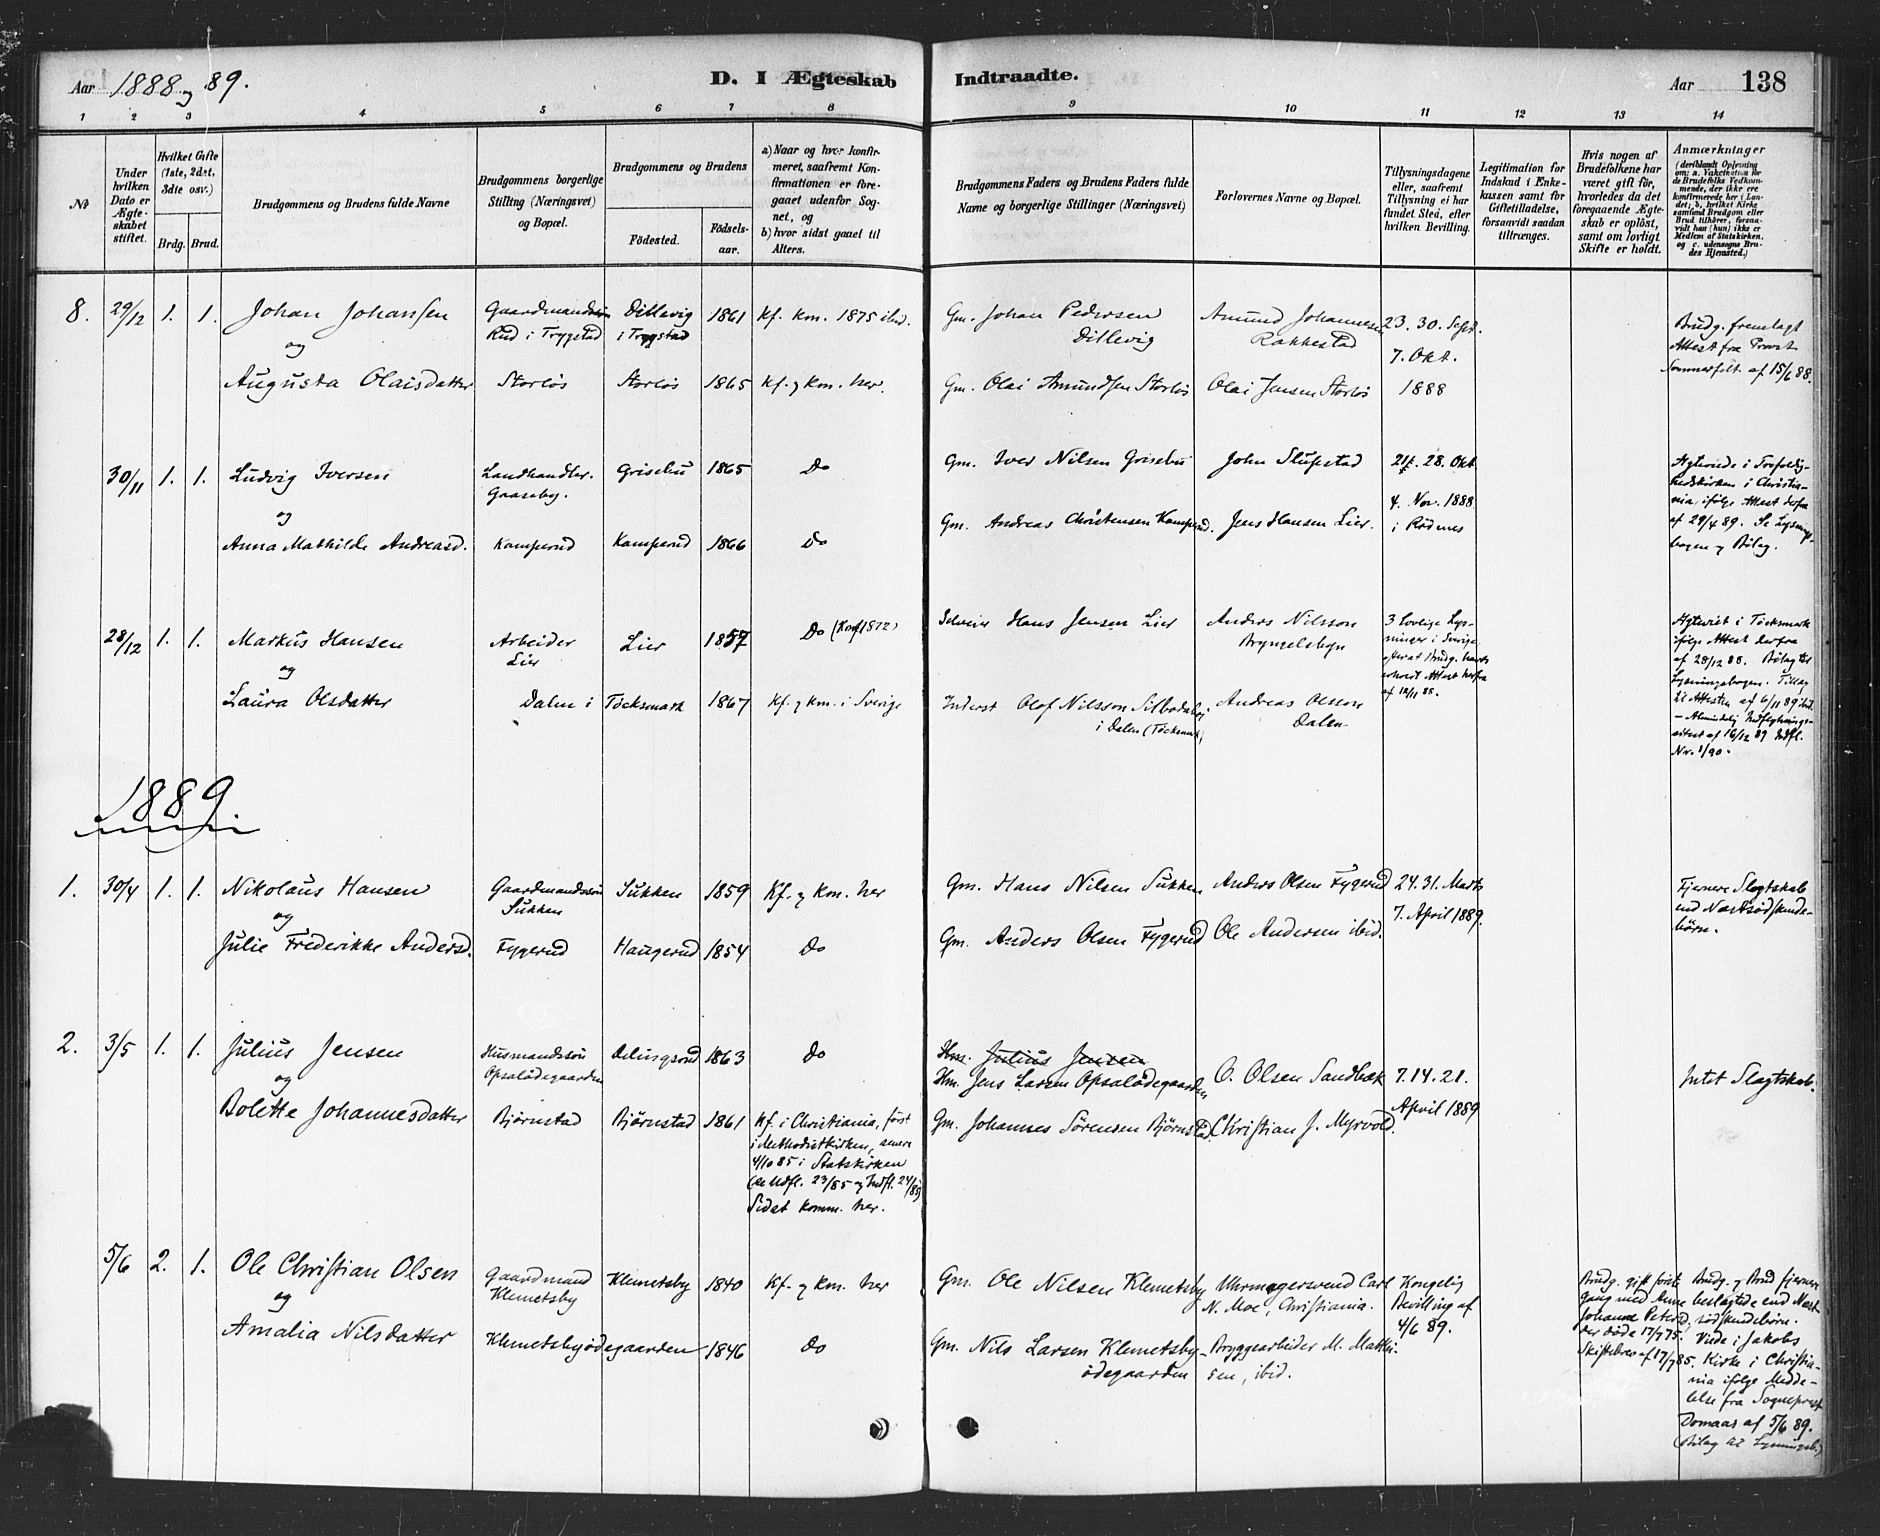 Aar 1888 og 89. D. I Ægteskab Indtraadte. Aar 138
1 2 3 4 5 6 7 8 9 10 11 12 13 14
No
Under hvilken Dato er Ægteskabet stiftet.
Hvilket Gifte (1ste, 2det, 3die osv.)
Brdg. Brud.
Brudgommens og Brudens fulde Navne
Brudgommens borgerlige Stilling (Næringsvei) og Bopæl.
Brudgommens og Brudens
Födested. Födsels-aar.
a) Naar og hvor konfirmeret, saafremt Konfirmationen er foregaaet udenfor Sognet, og
b) hvor sidst gaaet til Alters.
Brudgommens Faders og Brudens Faders fulde Navne og borgerlige Stillinger (Næringsvei)
Forlovernes Navne og Bopæl.
Tillysningsdagene eller, saafremt Tillysning ei har fundet Sted, efter hvilken Bevilling.
Legitimation for Indskud i Enkekassen samt for Giftetilladelse, forsaavidt saadan tiltrænges.
Hvis nogen af Brudefolkene har været gift för, hvorledes da det foregaaende Ægteskab er oplöst, samt om lovligt Skifte er holdt.
Anmærkninger
(deriblandt Oplysning om: a. Vakcination for de Brudefolks Vedkommende, der ikke ere konfirmerede her i Landet; b. hvilket Kirkesamfund Brudgom eller Brud tilhörer, forsaavidt han (hun) ikke er Medlem af Statskirken, og c. udensogns Brudes Hjemsted.)
8. 29/12 1. 1. Johan Johansen Gaardmandssön Dillevig 1861 Kf. Km. 1875 ibid. Gm. Johan Pedersen Amund Johannesen 23. 30. Sept.
og Rud i Trygstad i Trygstad Dillevig Rakkestad 7. Okt.
Augusta Olaisdatter Storløs Storløs 1865 Kf. og Km. her. Gm. Olai Amundsen Storløs Olai Jensen Storløs 1888
Brudg. fremlagt
Attest fra Provst
Sommerfelt af 15/6 88.
30/11 1. 1. Ludvig Iversen Landhandler. Grisebu 1865 Do Gm. Iver Nilsen Grisebu John Slupstad 21. 28. Okt.
og Gaaseby. 4. Nov. 1888
Anna Mathilde Andreasd. Kamperud Kamperud 1866 Do Gm. Andreas Christensen Kamperud. Jens Hansen Lier. i Rødenes
Ægteviede i Trefoldig-
hedskirken i Christia-
nia ifølge Attest derfra
af 29/4 89. Se Lysnings-
bogen og Bilag.
28/12 1. 1. Markus Hansen Arbeider Lier 1857 Do (Konf 1872) Selveier Hans Jensen Lier Anders Nilsson
og Lier Bryngelsbyn
Laura Olsdatter Dalen i Töcksmark 1867 Kf. og Km. i Sverige Inderst Olof Nilsson Silbodalog Andreas Olsson
i Dalen (Töcksmark) Dalen
3 lovlige Lys-
ninger i Sverige
efterat Brudg. havde
erholdt Attest herfra
af 12/11 88.
Ægteviet i Töcksmark
ifølge Attest derfra
af 28/12 88. Bilag til
Lysningebogen. Tillæg
til Attesten af 6/11 89 ibid.
- Almindelig Indflytnings-
attest af 16/12 89 Indfl.
Nr. 1/90.
1889.
1. 30/4 1. 1. Nikolaus Hansen Gaardmandssön Sukken 1859 Kf. og Km. her Gm. Hans Nilsen Sukken Anders Olsen Fygerud 24. 31. Marts
og Sukken 7. April 1889.
Julie Frederikke Andersd. Fygerud Haugerud 1854 Do Gm. Anders Olsen Fygerud Ole Andersen ibid.
Fjernere Slegtskab
end Næstsødskende-
børn.
2. 3/5 1. 1. Julius Jensen Husmandssön Delingsrud 1863 Do Hm. Julius Jensen
og Opsalödegaarden Hm. Jens Larsen Opsalödegaarden O. Olsen Sandbæk 7. 14. 21. Intet Slegtskab.
Bolette Johannesdatter Bjørnstad Bjørnstad 1861 Gm. Johannes Sörensen Bjørnstad. Christian J. Myrvold. April 1889
Kf. i Christiania, först
i Methodistkirken, senere
4/10 85 i Statskirken
(se Udfl. 23/85 og Indfl. 24/89)
Sidst Komm. her.
5/6 2. 1. Ole Christian Olsen Gaardmand Klemetsby 1840 Kf. og Km. her Gm. Ole Nilsen Klemetsby Uhrmagersvend Carl Kongelig
og Klemetsby N. Moe, Christiania. Bevilling af
Amalia Nilsdatter Klemetsbyødegaarden 1846 Do Gm. Nils Larsen Klemetsby- Bryggearbeider M. Matthi- 4/6 89.
ödegaarden sen, ibid.
Brudg. gift første
Gang med Anne
Johanne Petersd.,
der døde 17/7 75.
Skiftebrev af 17/7 85.
Brudg. og Brud fjernere
beslægtede end Næst-
södskendebörn.
Viede i Jakobs
Kirke i Christia-
nia ifølge Medde-
lelse fra Sogneprest
Domaas af 5/6 89.
(Bilag til Lysningsb.)